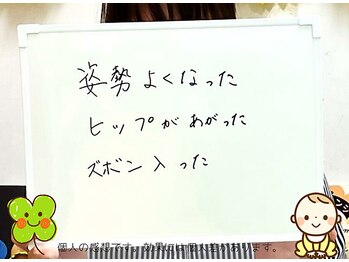 姿勢よくなった
ヒップがあがった
ズボン入った
個人の感想です。効果には個人差があります。